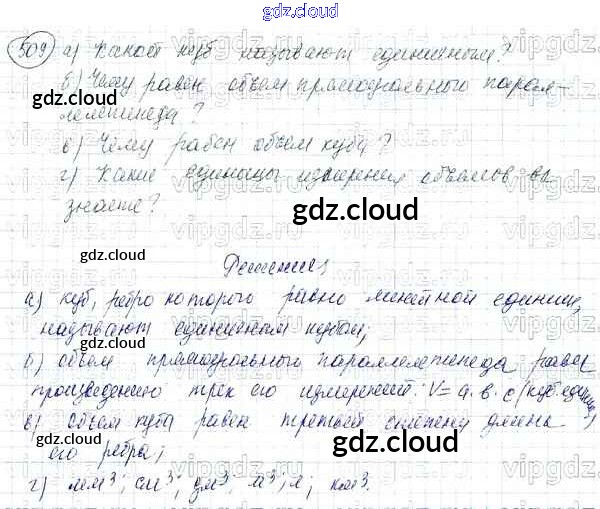 gdz.cloud
509 а) Какой куб называют единичным?
б) Чему равен объем прямоугольного парал-
лелепипеда?
в) Чему равен объем куба?
г) Какие единицы измерения объемов вы
знаете?
Решение
а) куб, ребро которого равно линейной единице,
называют единичным кубом;
б) объем прямоугольного параллелепипеда равен
произведению трех его измерений: V = a.в.с (куб.единиц)
в) объем куба равен третьей степени длины
его ребра;
г) мм³; см³; дм³; м³; л; км³.